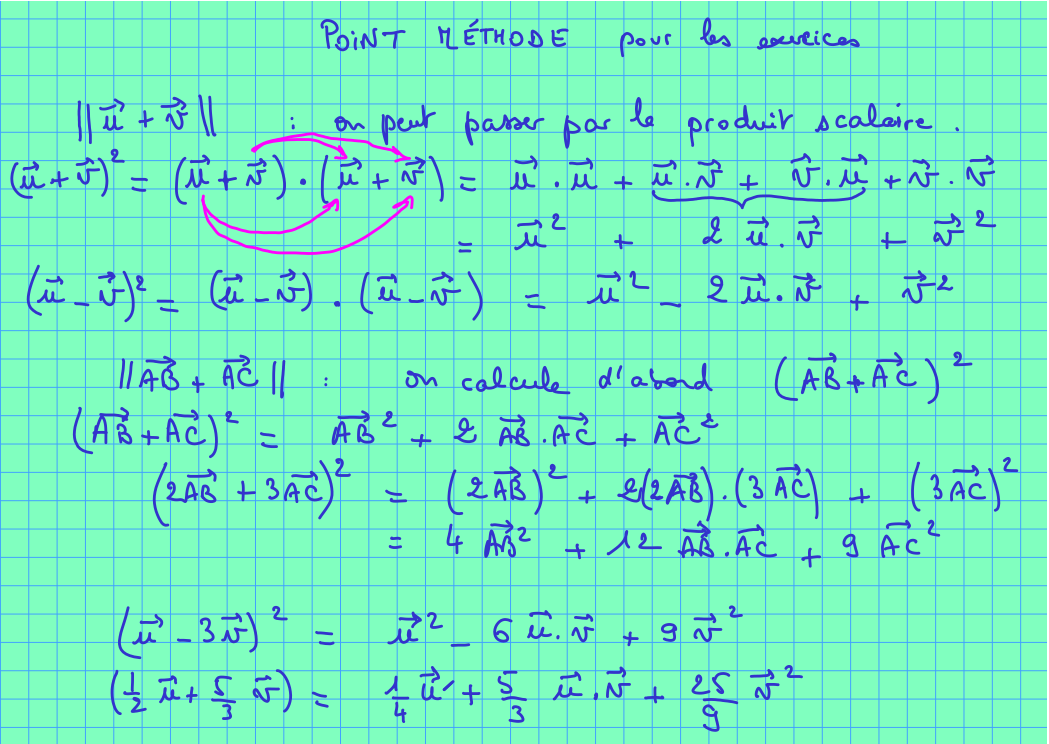 POINT MÉTHODE pour les exercices
||u⃗ + v⃗|| : on peut passer par le produit scalaire.
(u⃗ + v⃗)² = (u⃗ + v⃗) · (u⃗ + v⃗) = u⃗ · u⃗ + u⃗ · v⃗ + v⃗ · u⃗ + v⃗ · v⃗
= u⃗² + 2 u⃗ · v⃗ + v⃗²
(u⃗ - v⃗)² = (u⃗ - v⃗) · (u⃗ - v⃗) = u⃗² - 2 u⃗ · v⃗ + v⃗²
||AB⃗ + AC⃗|| : on calcule d'abord (AB⃗ + AC⃗)²
(AB⃗ + AC⃗)² = AB⃗² + 2 AB⃗ · AC⃗ + AC⃗²
(2AB⃗ + 3AC⃗)² = (2AB⃗)² + 2(2AB⃗) · (3AC⃗) + (3AC⃗)²
= 4 AB⃗² + 12 AB⃗ · AC⃗ + 9 AC⃗²
(u⃗ - 3v⃗)² = u⃗² - 6 u⃗ · v⃗ + 9 v⃗²
(1/2 u⃗ + 5/3 v⃗) = 1/4 u⃗² + 5/3 u⃗ · v⃗ + 25/9 v⃗²